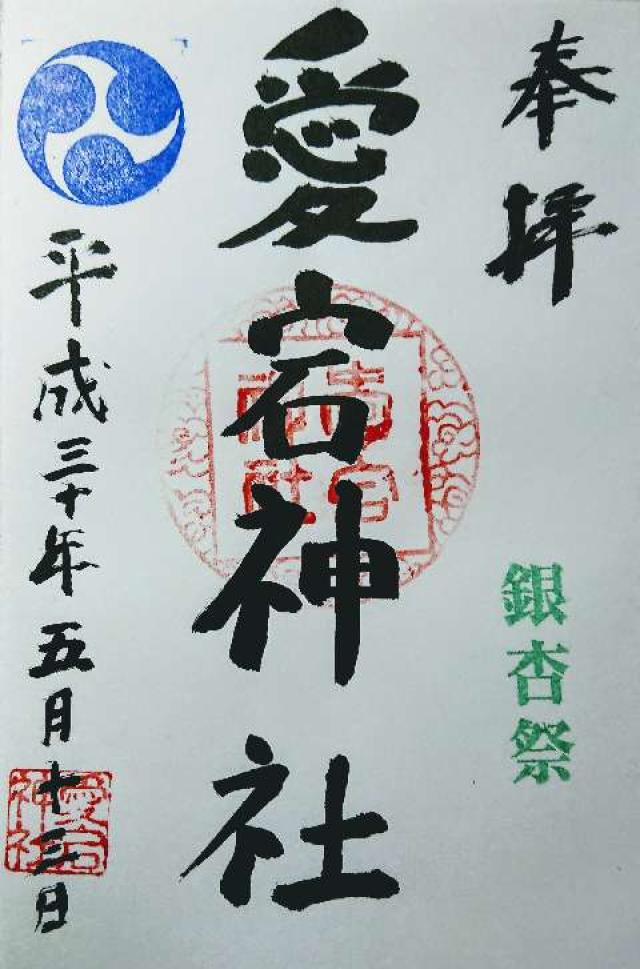 奉拝
銀杏祭
愛宕神社
平成三十年五月十三日
愛宕
神社